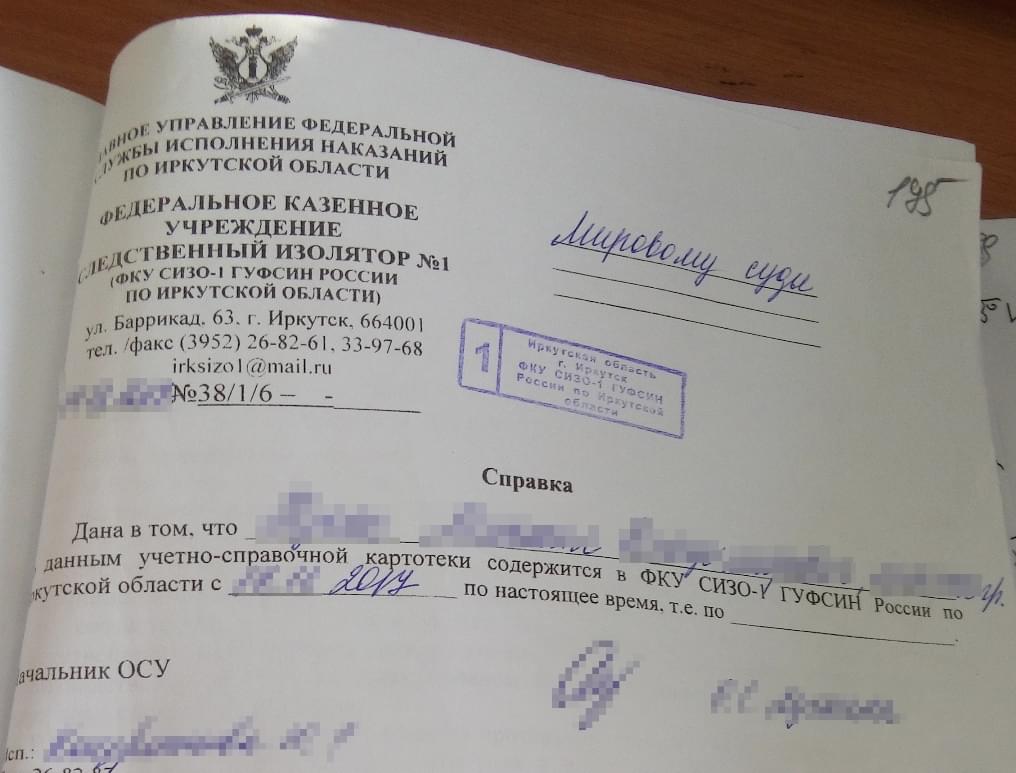 ГЛАВНОЕ УПРАВЛЕНИЕ ФЕДЕРАЛЬНОЙ
СЛУЖБЫ ИСПОЛНЕНИЯ НАКАЗАНИЙ
ПО ИРКУТСКОЙ ОБЛАСТИ
ФЕДЕРАЛЬНОЕ КАЗЕННОЕ
УЧРЕЖДЕНИЕ
СЛЕДСТВЕННЫЙ ИЗОЛЯТОР №1
(ФКУ СИЗО-1 ГУФСИН РОССИИ
ПО ИРКУТСКОЙ ОБЛАСТИ)
ул. Баррикад, 63, г. Иркутск, 664001
тел. /факс (3952) 26-82-61, 33-97-68
irksizo1@mail.ru
№38/1/6 – -
195
Мировому судье
1
Иркутская область
г. Иркутск
ФКУ СИЗО-1 ГУФСИН
России по Иркутской
области
Справка
Дана в том, что
данным учетно-справочной картотеки содержится в ФКУ СИЗО-1 ГУФСИН России по
ркутской области с по настоящее время, т.е. по .
ачальник ОСУ
сп.: